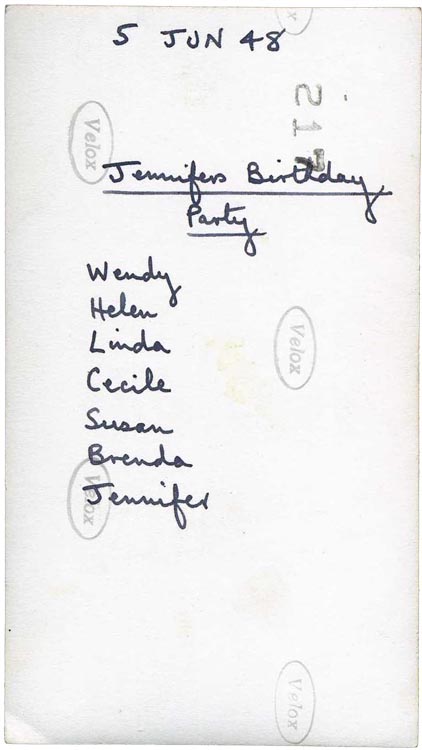 5 JUN 48
217
Velox
Jennifers Birthday
Party
Wendy
Helen
Linda
Velox
Cecile
Susan
Brenda
Velox
Jennifer
Velox